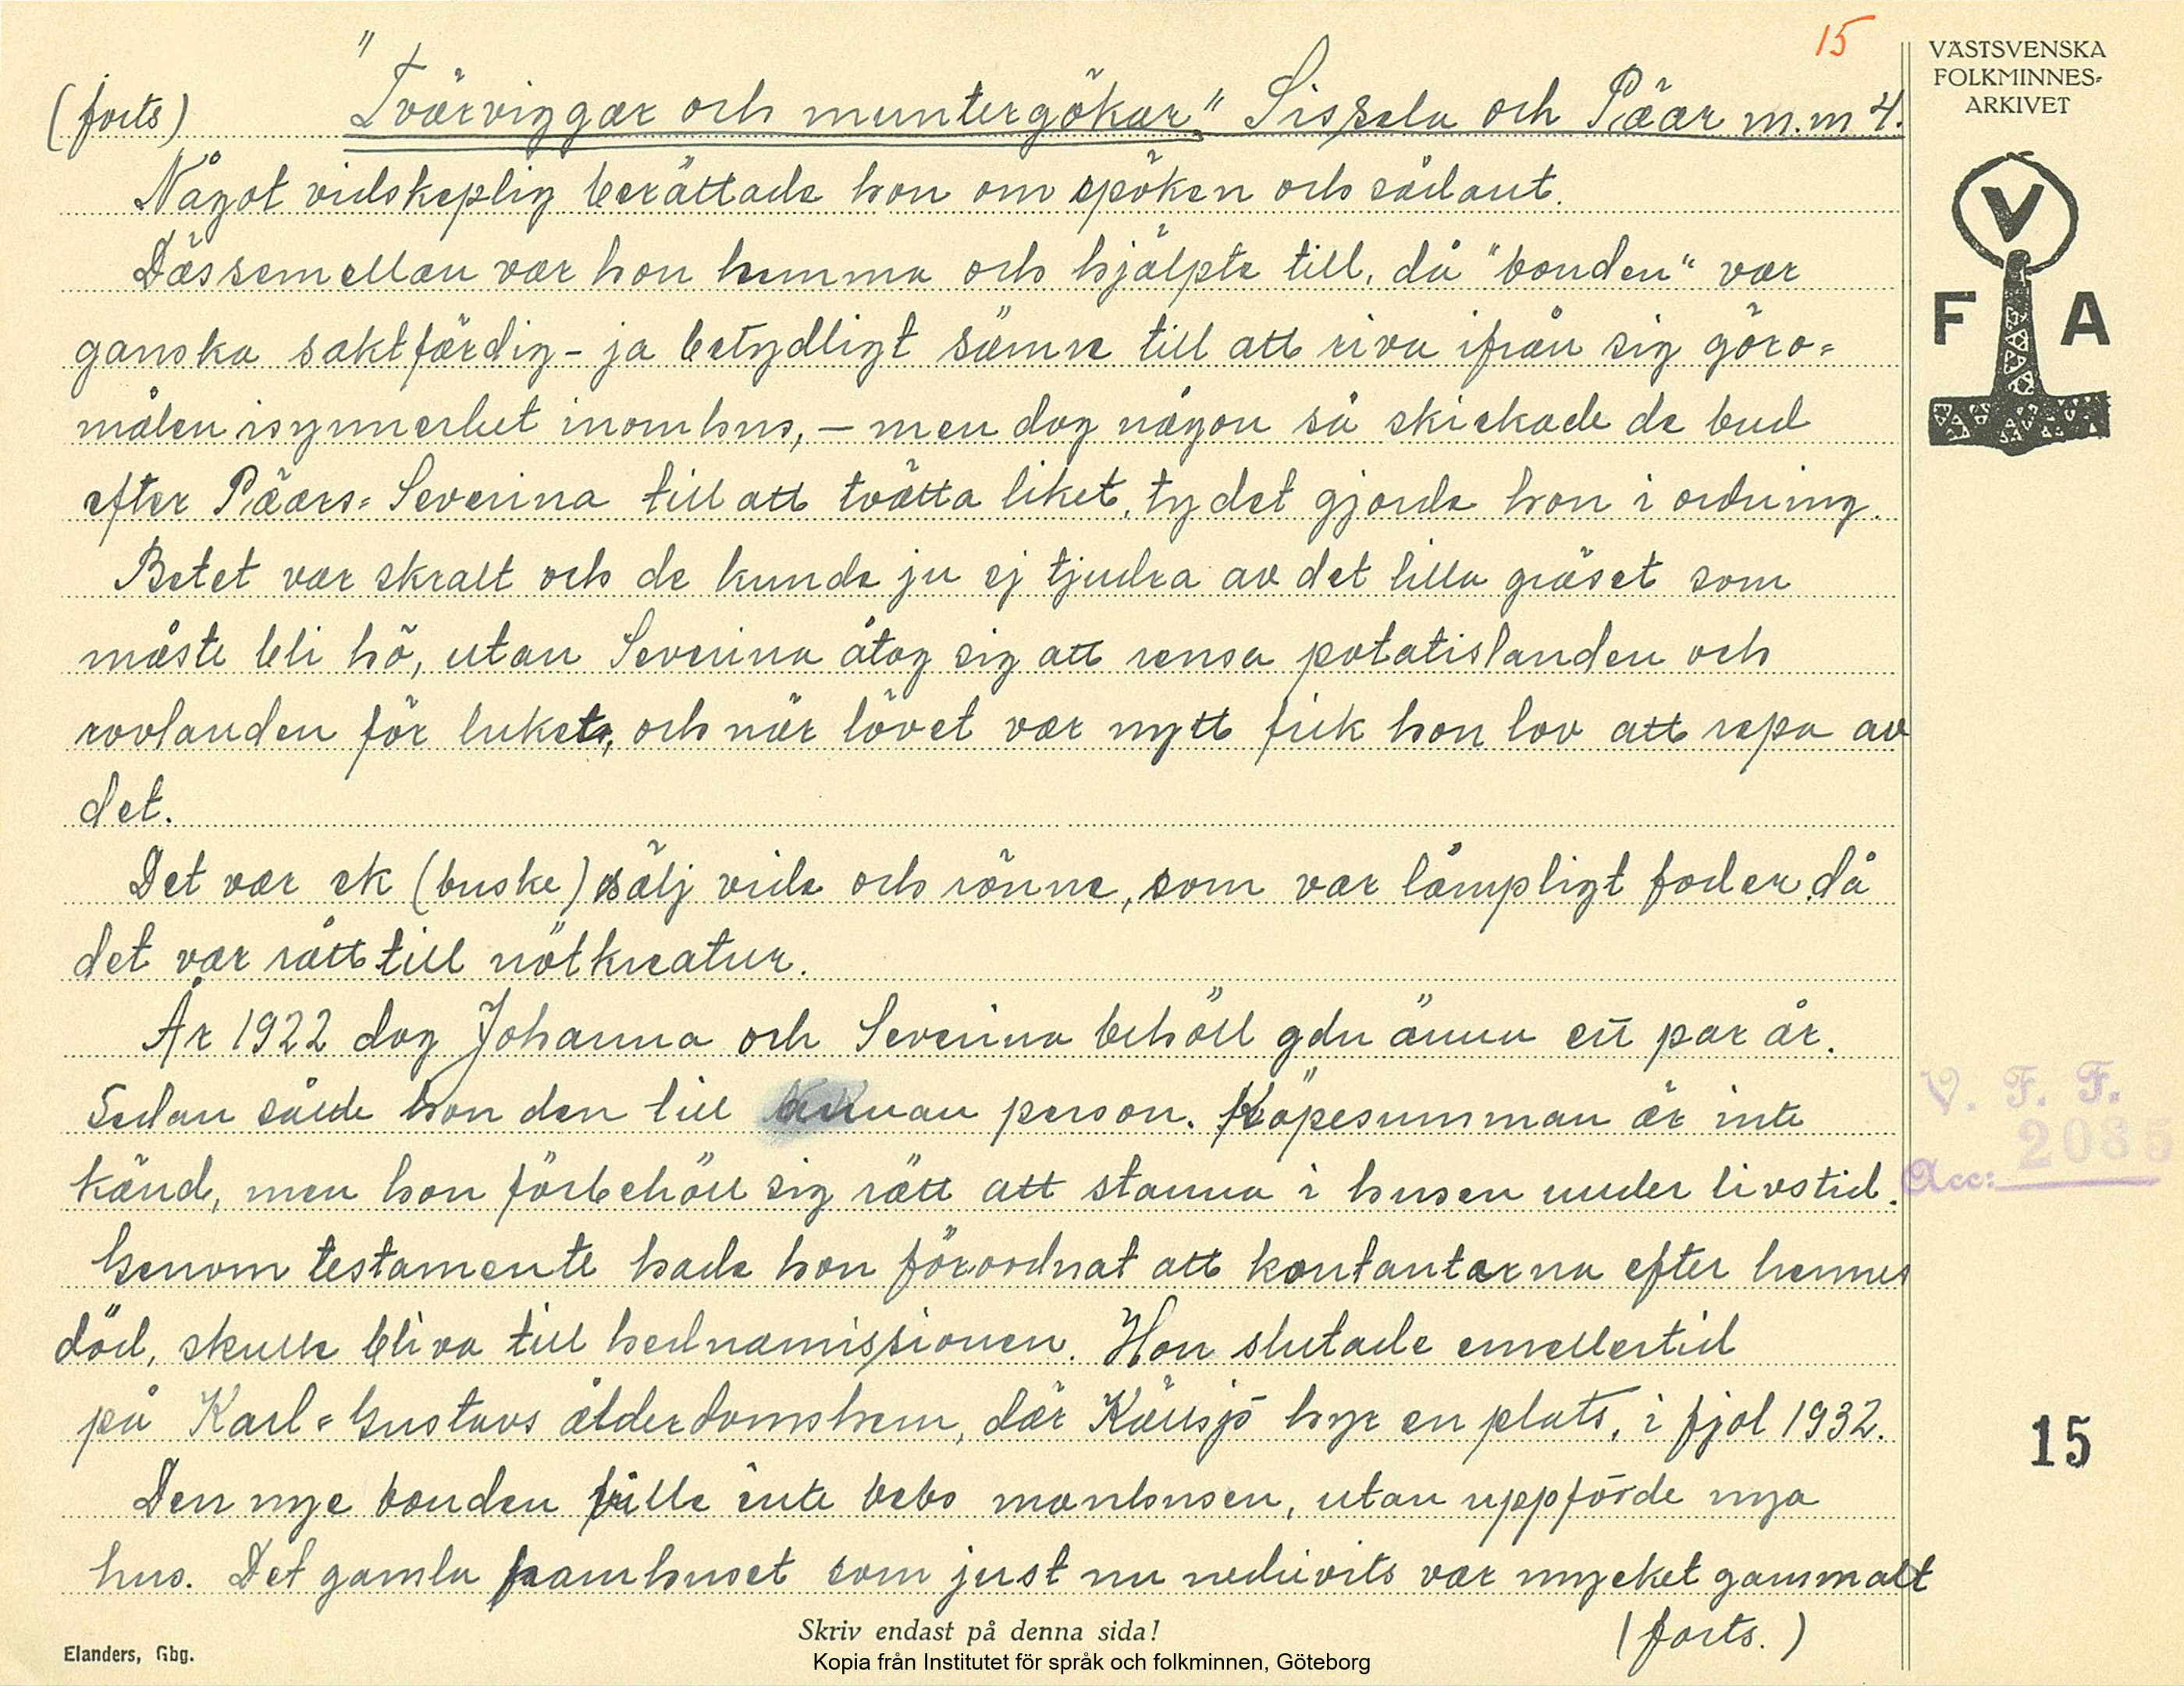 15
VÄSTSVENSKA
FOLKMINNES-
ARKIVET
(forts) "Tvärviggar och muntergökar" Sissela och Päär m.m 4.
Något vidskeplig berättade hon om spöken och sådant.
Dässemellan var hon hemma och hjälpte till, då "bonden" var
ganska saktfärdig - ja betydligt sämre till att riva ifrån sig göro=
målen isynnerhet inomhus, - men dog någon så skickade de bud
efter Päärs= Severina till att tvätta liket, ty det gjorde hon i ordning.
Betet var skralt och de kunde ju ej tjudra av det lilla gräset som
måste bli hö, utan Severina åtog sig att rensa potatislanden och
rovlanden för luket, och när lövet var nytt fick hon lov att repa av
det.
Det var ek (buske) sälj vide och rönne, som var lämpligt foder då
det var rått till nötkreatur.
År 1922 dog Johanna och Severina behöll gdn ännu ett par år.
Sedan sålde hon den till annan person. Köpesumman är inte
känd, men hon förbehöll sig rätt att stanna i husen under livstid.
Genom testamente hade hon förordnat att kontanterna efter hennes
död, skulle bliva till hednamissionen. Hon slutade emellertid
på Karl=Gustavs ålderdomshem, där Källsjö hyr en plats, i fjol 1932.
Den nye bonden ville inte bebo manhusen, utan uppförde nya
hus. Det gamla framhuset som just nu nedrivits var mycket gammalt
(forts.)
V
F A
V. F. F.
Acc: 2085
15
Skriv endast på denna sida!
Elanders, Gbg.
Kopia från Institutet för språk och folkminnen, Göteborg